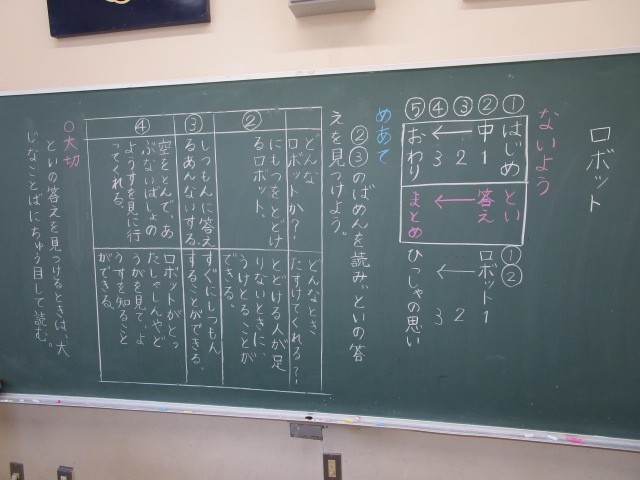 ロボット
ないよう
①はじめ とい
②中1 答え ①ロボット1
③ 2 ② 2
④ 3 3
⑤おわり まとめ ひっしゃの思い
めあて
②③のばめんを読み、といの答
えを見つけよう。
どんな
ロボットか？
どんなとき
たすけてくれる？
②
にもつをとどけ
るロボット。
とどける人が足
りないときに、
うけとることが
できる。
③
しつもんに答え
るあんないする。
すぐにしつもん
することができる。
④
空をとんで、あ
ぶないばしょの
ようすを見に行
ってくれる。
ロボットがとっ
たしゃしんやど
うがを見て、よ
うすを知ること
ができる。
○大切
といの答えを見つけるときは、大
じなことばにちゅう目して読む。